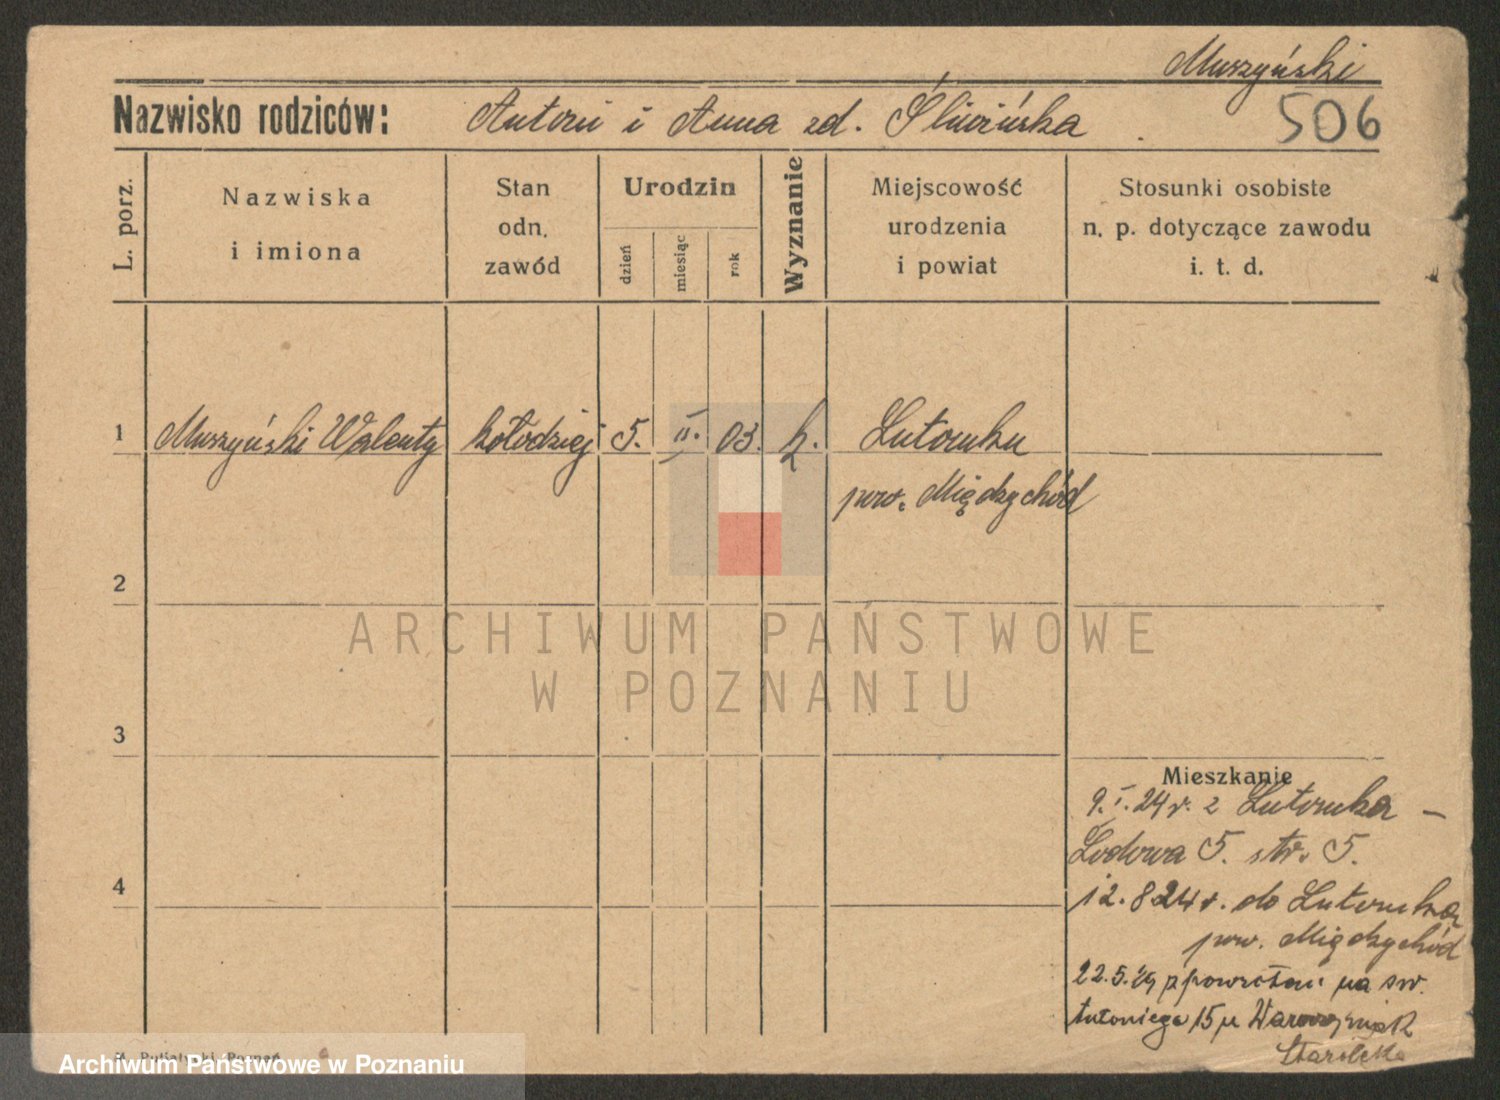 Muszyński
Nazwisko rodziców: Antoni i Anna zd. Śliwińska
506
L. porz.
Nazwiska
i imiona
Stan
odn.
zawód
Urodzin
dzień
miesiąc
rok
Wyznanie
Miejscowość
urodzenia
i powiat
Stosunki osobiste
n. p. dotyczące zawodu
i. t. d.
1 Muszyński Walenty kołodziej 5. II. 03. k. Lutomku
pow. Międzychód
2
3
4
ARCHIWUM PAŃSTWOWE
W POZNANIU
Mieszkanie
9.I.24 r. z Lutomka —
Lodowa 5. str. 5.
12.8 24 r. do Lutomka
pow. Międzychód
22.5. na św.
Antoniego 15 u
Starołęka
Poznań
Archiwum Państwowe w Poznaniu